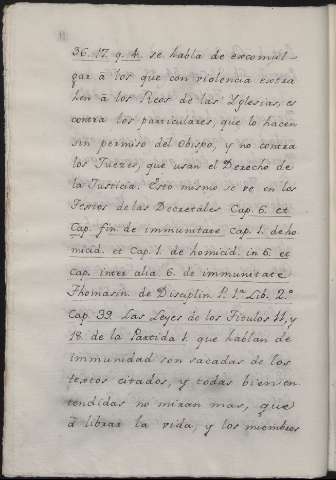 36. 17. q. 4. se habla de excomul-
gar à los que con violencia extra
hen à los Reos de las Yglesias, es
contra los particulares, que lo hacen
sin permiso del Obispo, y no contra
los Jueces, que usan el Derecho de
la Justicia. Esto mismo se ve en los
Textos de las Decretales Cap. 6. et
Cap. fin. de immunitate cap. 1. de ho
micid. et Cap. 1. de homicid. in 6. et
cap. inter alia 6. de immunitate
Thomasin. de Disciplin P. 1.ª Lib. 2.º
Cap. 39. Las Leyes de los Titulos 11, y
18. de la Partida 1. que hablan de
immunidad son sacadas de los
textos citados, y todas bien en
tendidas no miran mas, que
à librar la vida, y los miembros